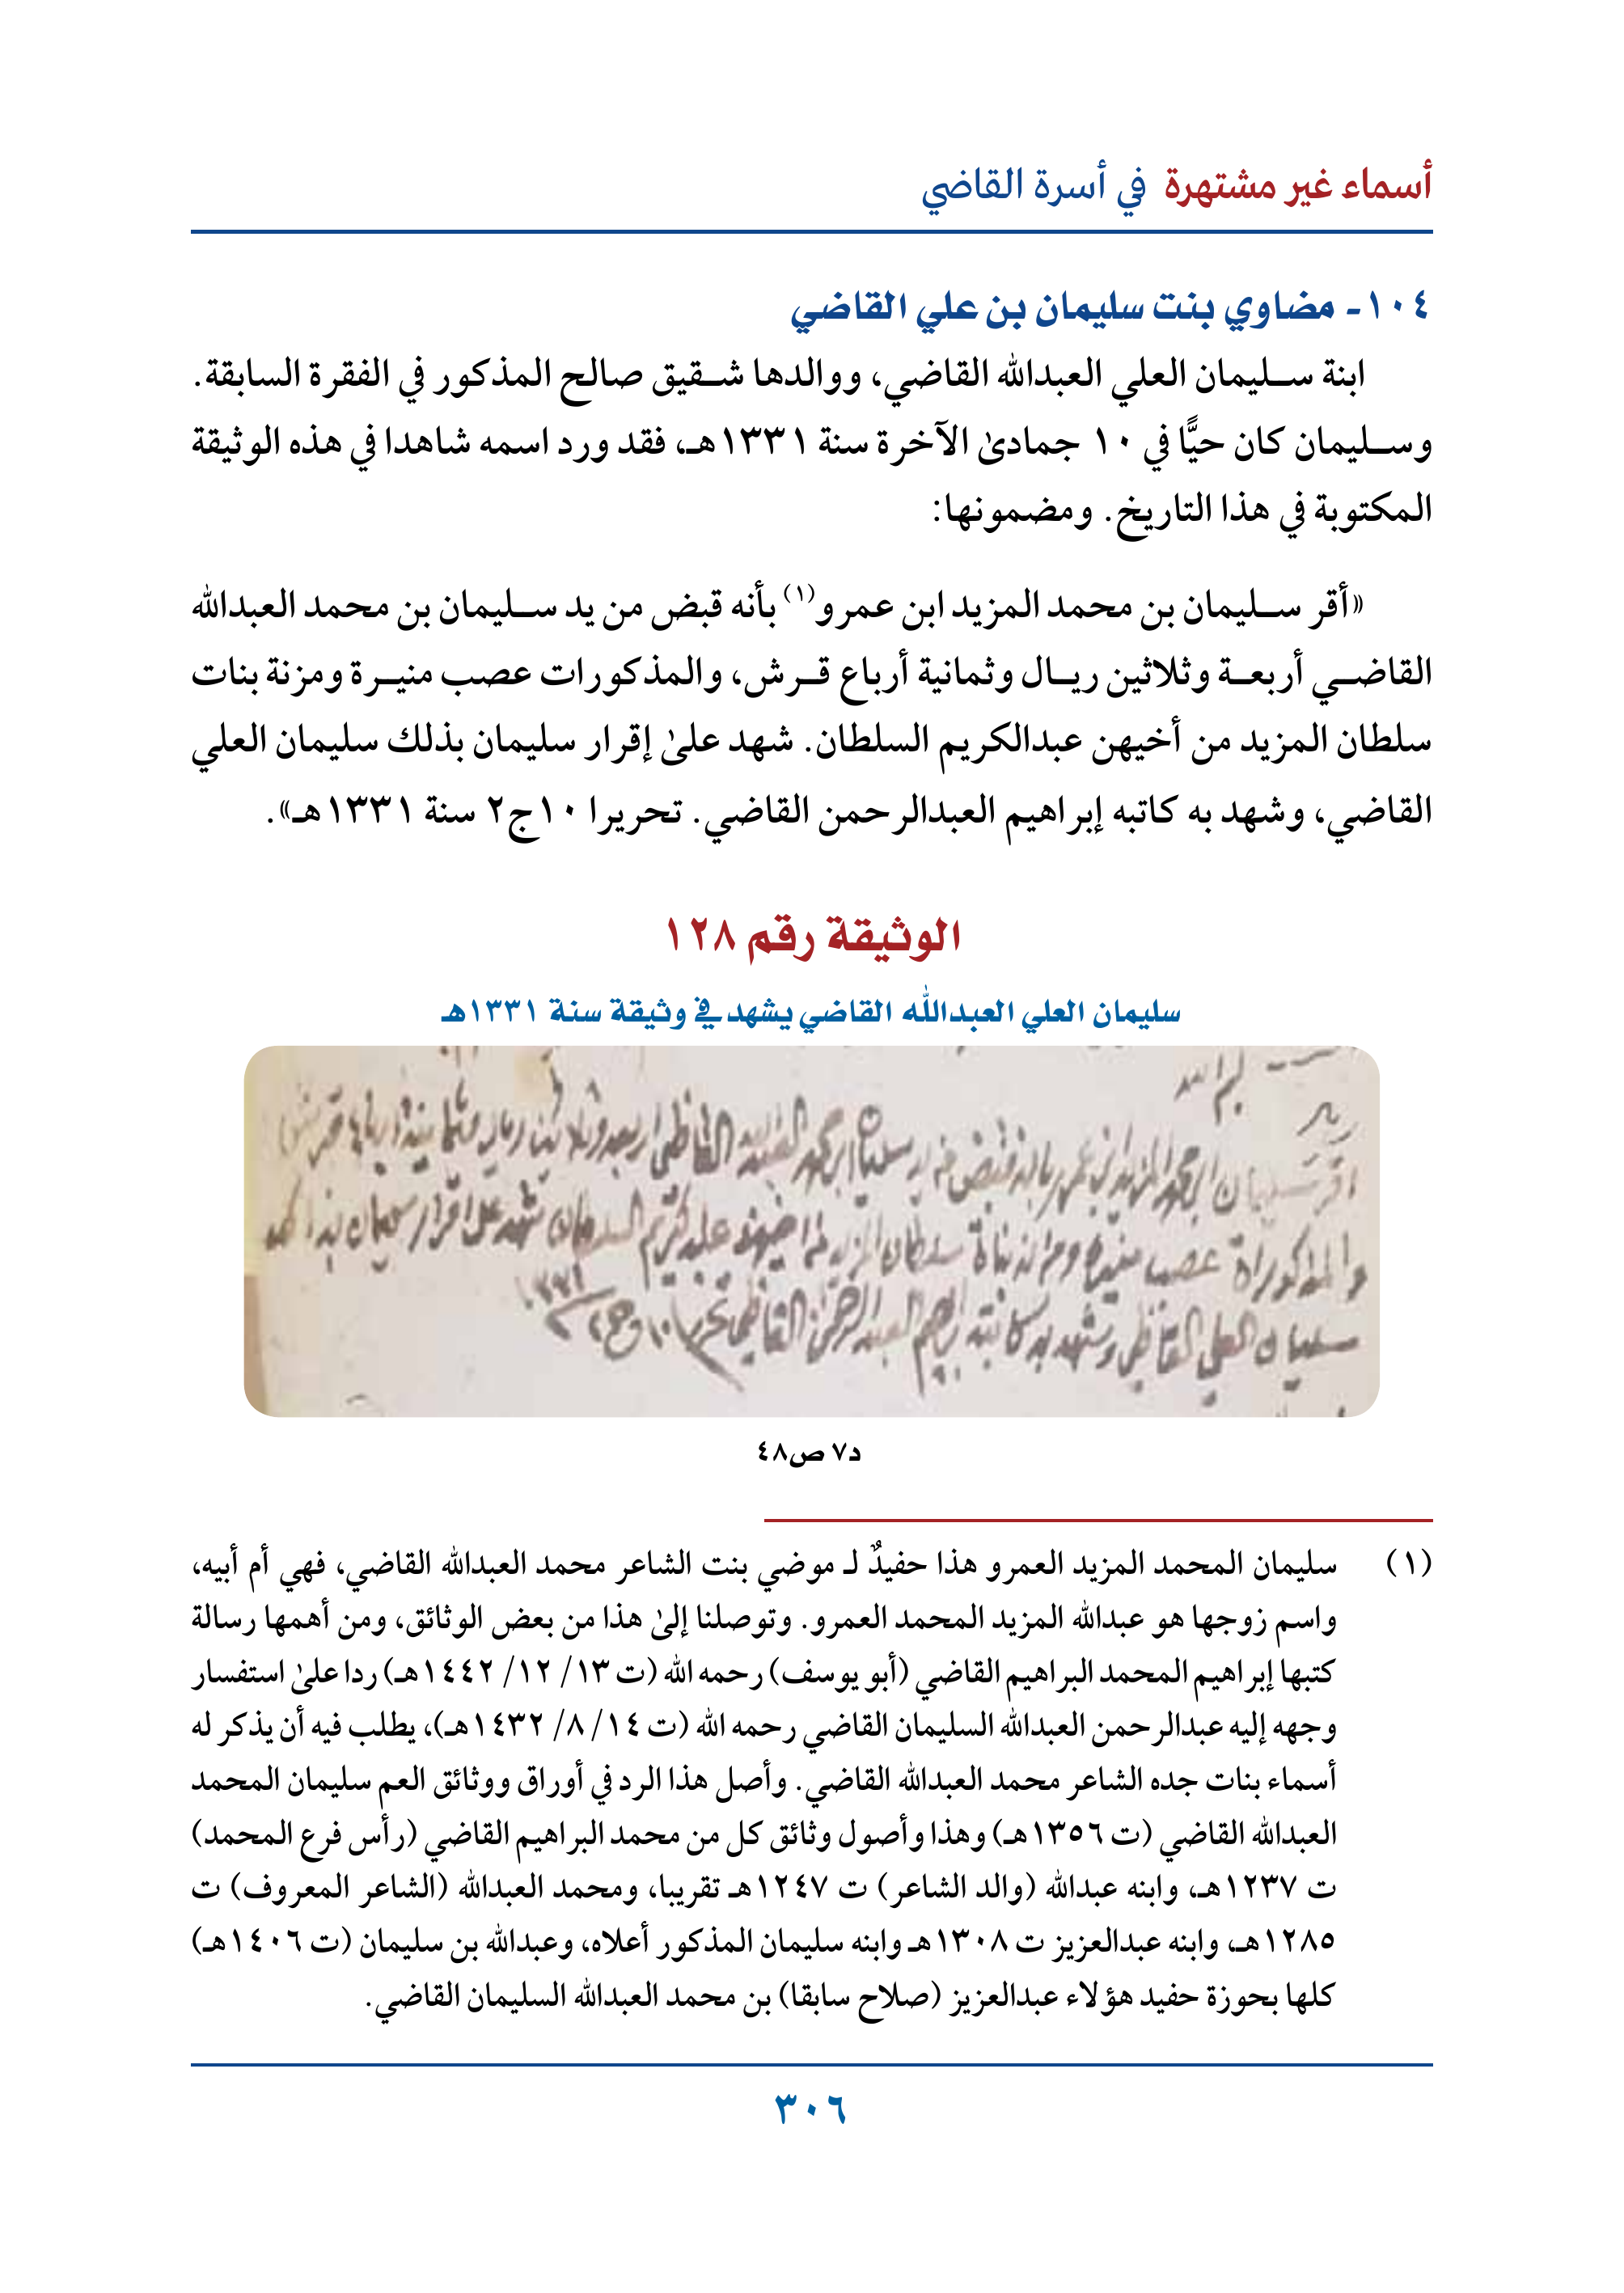 أسماء غير مشتهرة في أسرة القاضي
١٠٤- مضاوي بنت سليمان بن علي القاضي
ابنة سليمان العلي العبدالله القاضي، ووالدها شقيق صالح المذكور في الفقرة السابقة.
وسليمان كان حيًّا في ١٠ جمادىٰ الآخرة سنة ١٣٣١هـ، فقد ورد اسمه شاهدا في هذه الوثيقة
المكتوبة في هذا التاريخ. ومضمونها:
«أقر سليمان بن محمد المزيد ابن عمرو(١) بأنه قبض من يد سليمان بن محمد العبدالله
القاضي أربعة وثلاثين ريال وثمانية أرباع قرش، والمذكورات عصب منيرة ومزنة بنات
سلطان المزيد من أخيهن عبدالكريم السلطان. شهد علىٰ إقرار سليمان بذلك سليمان العلي
القاضي، وشهد به كاتبه إبراهيم العبدالرحمن القاضي. تحريرا ١٠ج٢ سنة ١٣٣١هـ».
الوثيقة رقم ١٢٨
سليمان العلي العبدالله القاضي يشهد في وثيقة سنة ١٣٣١هـ
اقر سليمان ابن محمد المزيد ابن عمر بانه قبض من يد سليمان ابن محمد العبدالله القاظي اربعه وثلاثين ريال وثمانية ارباع قرش
والمذكوراة عصب منيره ومزنه بناة سلطان المزيد من اخيهن عبدكريم السلطان شهد على اقرار سليمان بذالك
سليمان العلي القاظي وشهد به كاتبه ابراهيم العبدالرحمن القاظي
د٧ ص٤٨
(١) سليمان المحمد المزيد العمرو هذا حفيدٌ لـ موضي بنت الشاعر محمد العبدالله القاضي، فهي أم أبيه،
واسم زوجها هو عبدالله المزيد المحمد العمرو. وتوصلنا إلىٰ هذا من بعض الوثائق، ومن أهمها رسالة
كتبها إبراهيم المحمد البراهيم القاضي (أبو يوسف) رحمه الله (ت ١٣/ ١٢/ ١٤٤٢هـ) ردا علىٰ استفسار
وجهه إليه عبدالرحمن العبدالله السليمان القاضي رحمه الله (ت ١٤/ ٨/ ١٤٣٢هـ)، يطلب فيه أن يذكر له
أسماء بنات جده الشاعر محمد العبدالله القاضي. وأصل هذا الرد في أوراق ووثائق العم سليمان المحمد
العبدالله القاضي (ت ١٣٥٦هـ) وهذا وأصول وثائق كل من محمد البراهيم القاضي (رأس فرع المحمد)
ت ١٢٣٧هـ، وابنه عبدالله (والد الشاعر) ت ١٢٤٧هـ تقريبا، ومحمد العبدالله (الشاعر المعروف) ت
١٢٨٥هـ، وابنه عبدالعزيز ت ١٣٠٨هـ وابنه سليمان المذكور أعلاه، وعبدالله بن سليمان (ت ١٤٠٦هـ)
كلها بحوزة حفيد هؤلاء عبدالعزيز (صلاح سابقا) بن محمد العبدالله السليمان القاضي.
٣٠٦